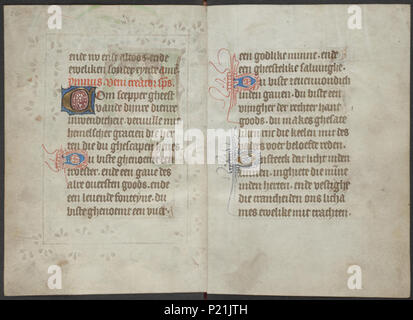 ende nv ende altoos. ende
eweliken sonder eynde ame
ymnus. Veni creator sps.
Com scepper gheest
vande dinre dienre
inwendicheit. vervulle mit
hemelscher gracien die her
ten die du ghescapen
Du biste ghenoemt een
troester. ende een gaue des
alre ouersten goods. ende
een leuende fonteyne. du
biste ghenoemt een vuer.
een godlike minne. ende
een gheestelike salvinghe.
Du biste seuenvondich
inden gauen. du biste een
vingher der rechter hant
goods. du makes ghesate
die keelen mit des
voer beloefde reden.
Ontsteect dat licht inden
sinnen. inghiete die minne
inden herten. ende vestighe
die crancheiden ons licha
mes ewelike mit crachten.
a
alamy
P21JTH